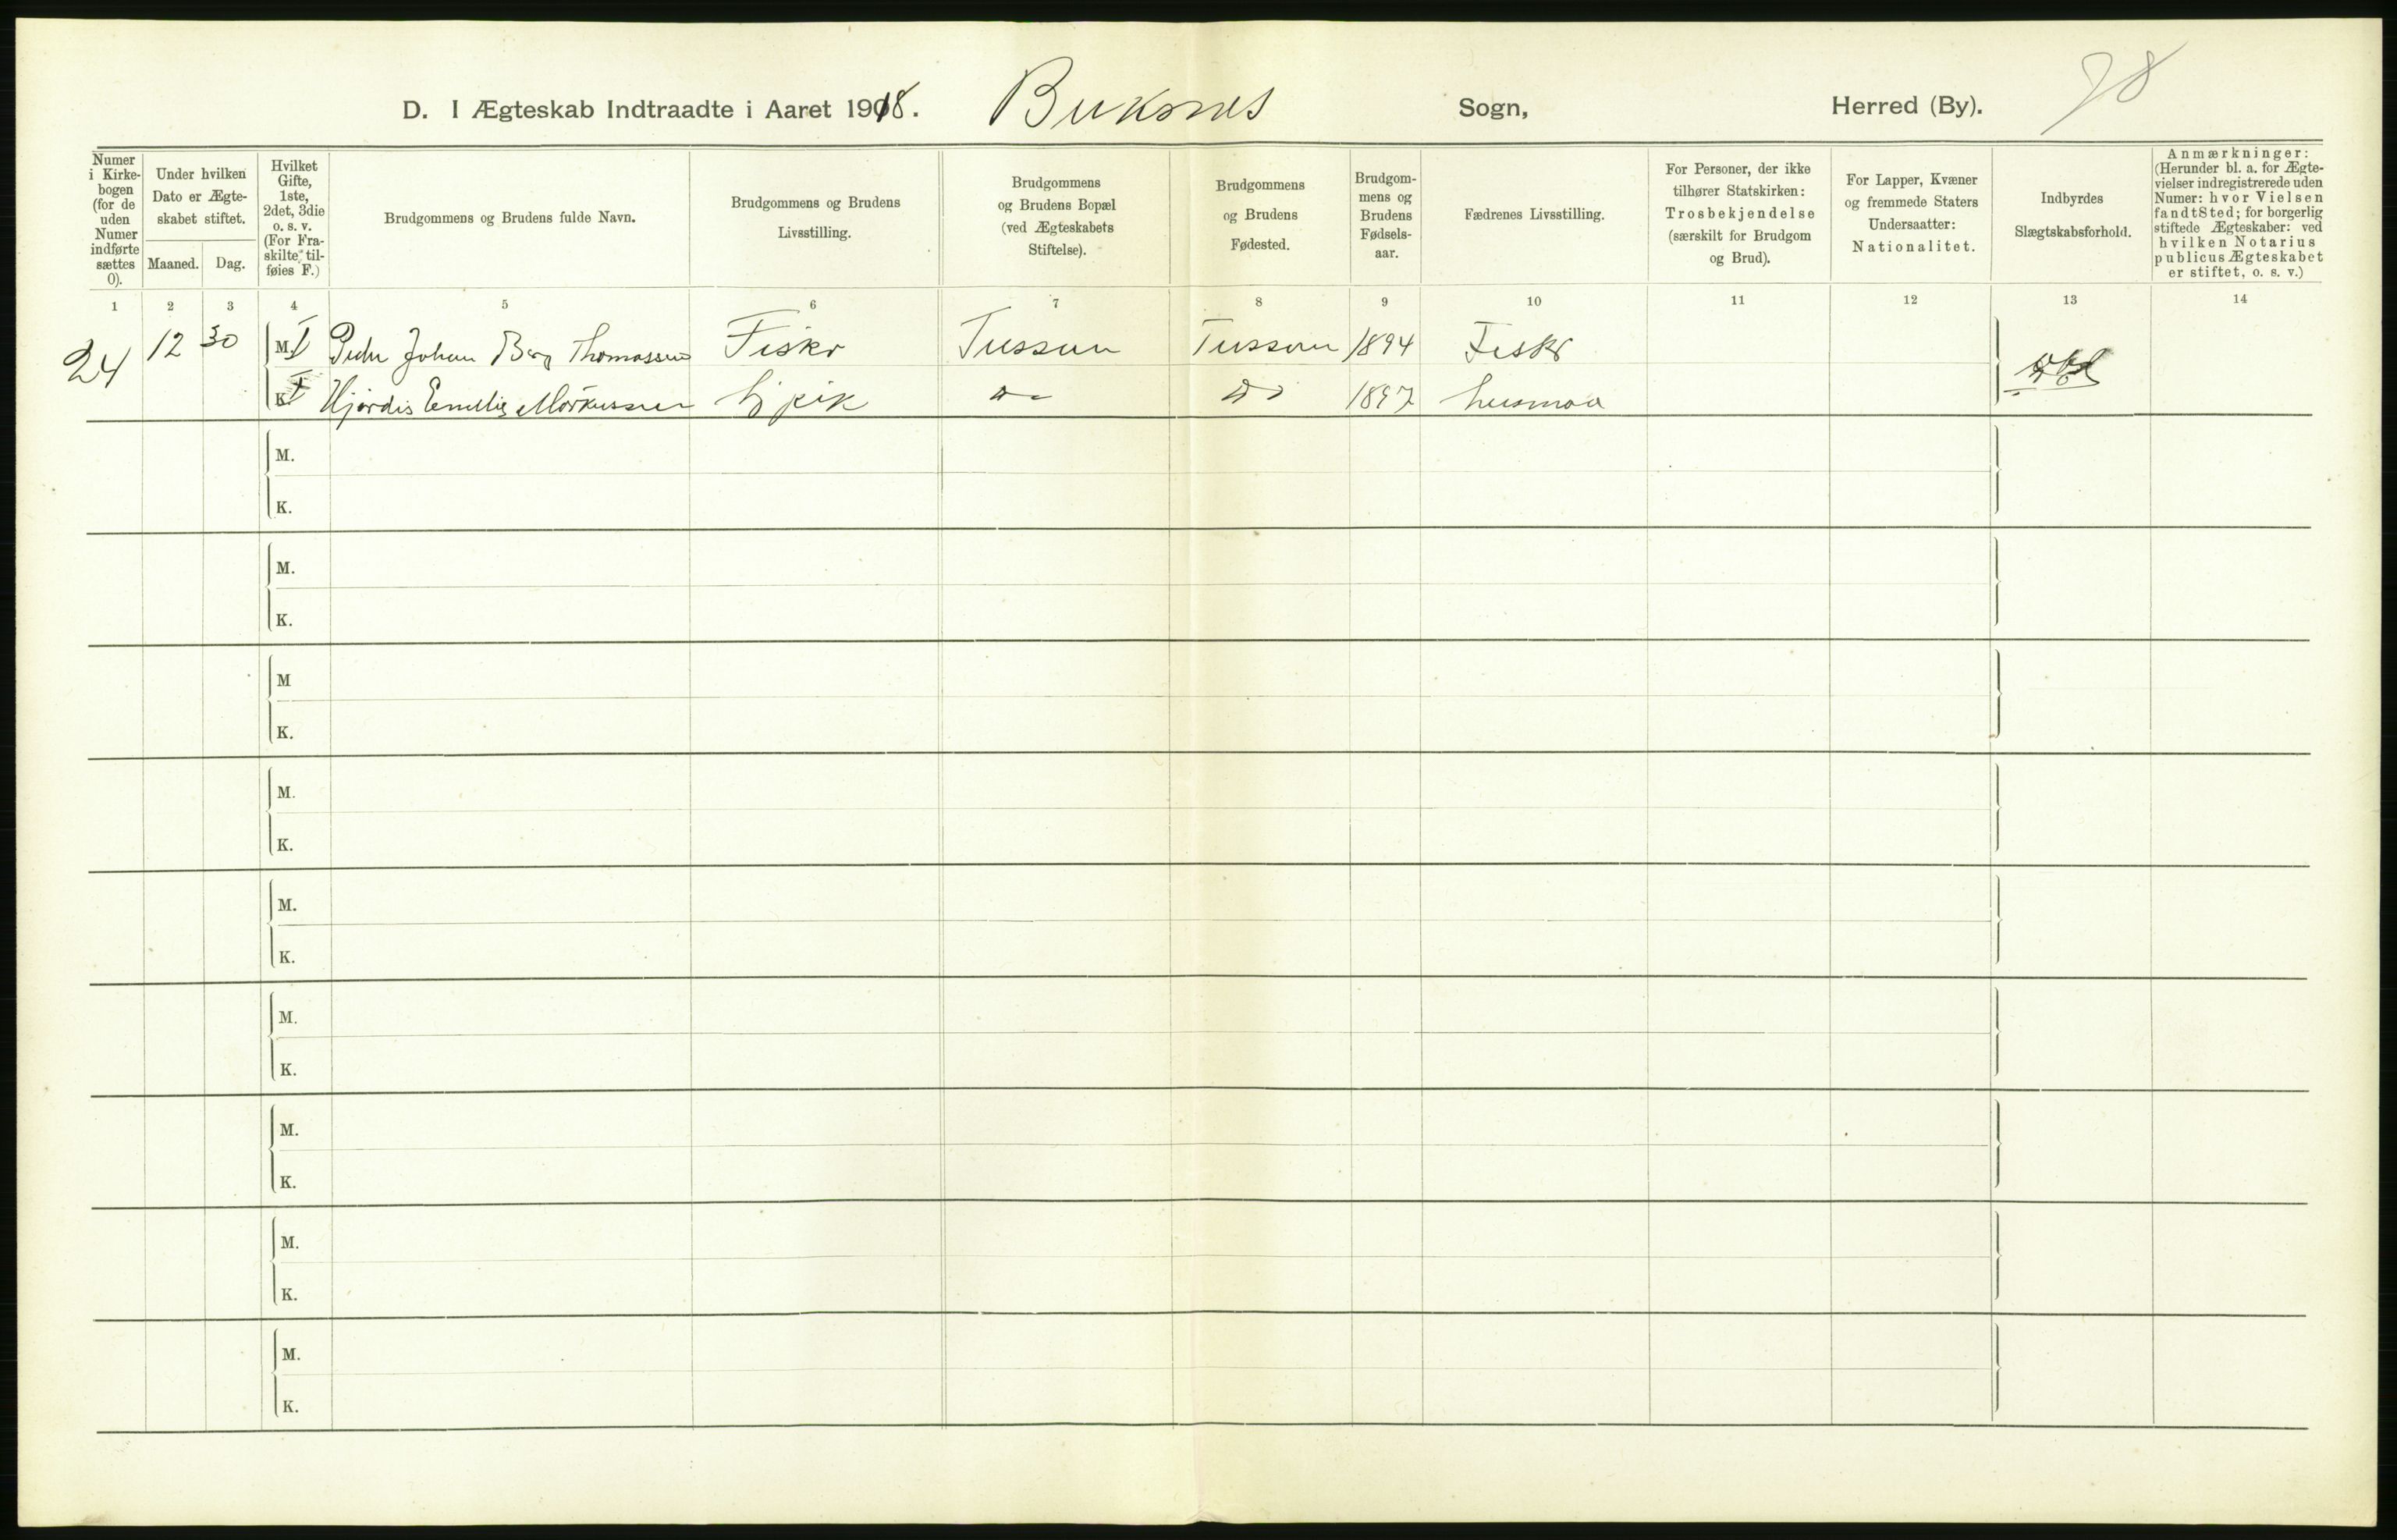 D. I Ægteskab Indtraadte i Aaret 1918. Buksnes Sogn, Herred (By). 78
Numer i Kirke-bogen (for de uden Numer indførte sættes 0).
Under hvilken Dato er Ægte-skabet stiftet.
Maaned. Dag.
Hvilket Gifte, 1ste, 2det, 3die o. s. v. (For Fra-skilte til-føies F.)
Brudgommens og Brudens fulde Navn.
Brudgommens og Brudens Livsstilling.
Brudgommens og Brudens Bopæl (ved Ægteskabets Stiftelse).
Brudgommens og Brudens Fødested.
Brudgom-mens og Brudens Fødsels-aar.
Fædrenes Livsstilling.
For Personer, der ikke tilhører Statskirken: Trosbekjendelse (særskilt for Brudgom og Brud).
For Lapper, Kvæner og fremmede Staters Undersaatter: Nationalitet.
Indbyrdes Slægtskabsforhold.
Anmærkninger: (Herunder bl. a. for Ægte-vielser indregistrerede uden Numer: hvor Vielsen fandt Sted; for borgerlig stiftede Ægteskaber: ved hvilken Notarius publicus Ægteskabet er stiftet, o. s. v.)
1 2 3 4 5 6 7 8 9 10 11 12 13 14
24 12 30 M. I Peder Johan Berg Thomassen Fisker 1894 Fisker
K. I Hjørdis Emilie Markussen Do 1897
M.
K.
M.
K.
M
K.
M.
K.
M.
K.
M.
K.
M.
K.
M.
K.
M.
K.